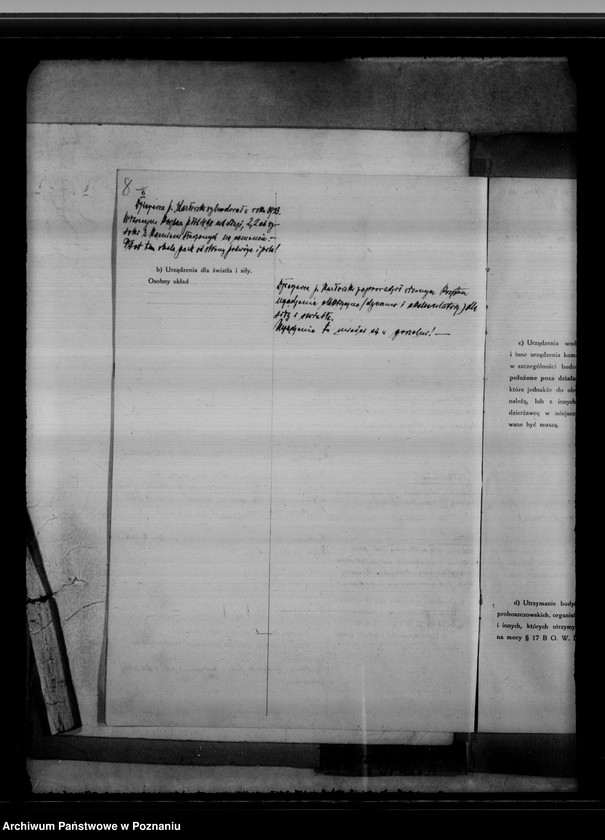 8
Dzierżawca p. Karłowski wybudował w roku 1923.
własnym kosztem płot
z kamieni
Płot ten okala park od strony podwórza i pola!
b) Urządzenia dla światła i siły.
Osobny układ
Dzierżawca p. Karłowski poprowadził własnym kosztem
urządzenie elektryczne (dynamo i akumulatory) dla
siły i światła.
Urządzenie to mieści się w gorzelni! —
c) Urządzenia wod
i inne urządzenia kom
w szczególności budo
położone poza działa
które jednakże do ob
należą, lub z innych
dzierżawcę w miejsce
wane być muszą.
d) Utrzymanie budy
proboszczowskich, organis
i innych, których utrzym
na mocy § 17 B O. W.
Archiwum Państwowe w Poznaniu